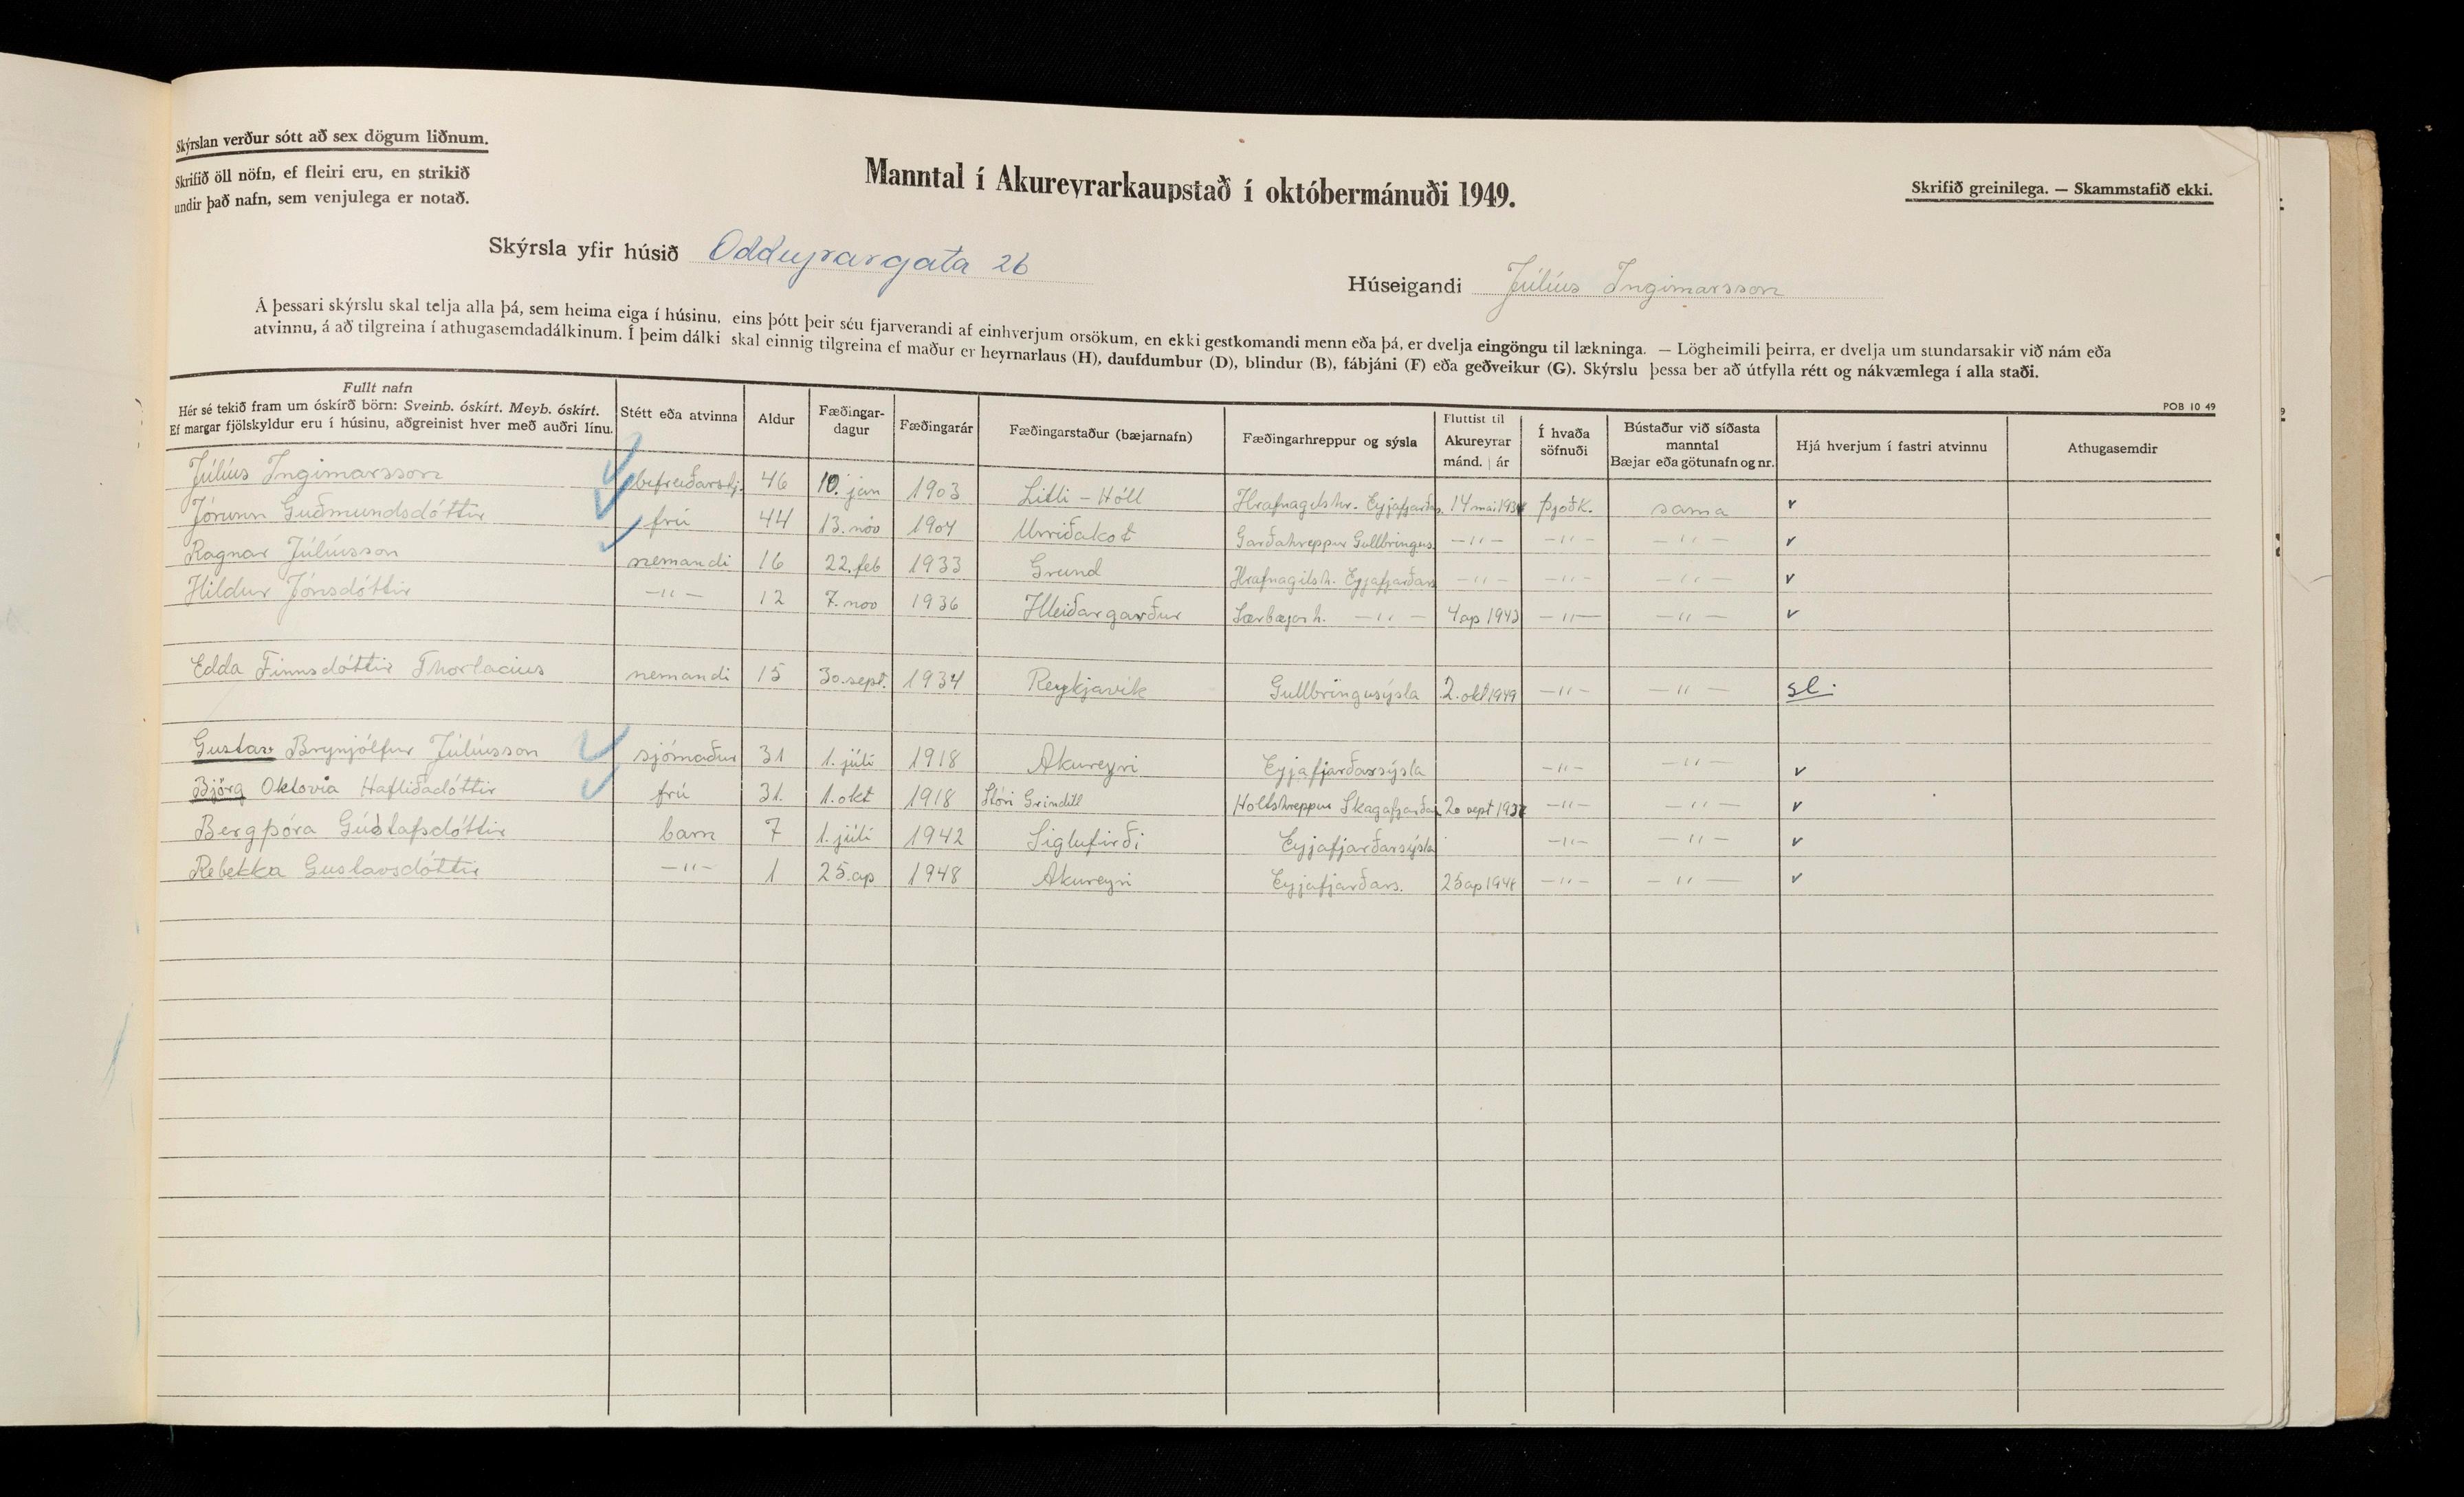 Skýrslan verður sótt að sex dögum liðnum.
Skrifið öll nöfn, ef fleiri eru, en strikið
undir það nafn, sem venjulega er notað.
Manntal í Akureyrarkaupstað í októbermánuði 1949.
Skrifið greinilega. — Skammstafið ekki.
Skýrsla yfir húsið Oddeyrargata 26
Húseigandi Júlíus Ingimarsson
Á þessari skýrslu skal telja alla þá, sem heima eiga í húsinu, eins þótt þeir séu fjarverandi af einhverjum orsökum, en ekki gestkomandi menn eða þá, er dvelja eingöngu til lækninga. — Lögheimili þeirra, er dvelja um stundarsakir við nám eða
atvinnu, á að tilgreina í athugasemdadálkinum. Í þeim dálki skal einnig tilgreina ef maður er heyrnarlaus (H), daufdumbur (D), blindur (B), fábjáni (F) eða geðveikur (G). Skýrslu þessa ber að útfylla rétt og nákvæmlega í alla staði.
POB 10 49
Fullt nafn
Hér sé tekið fram um óskírð börn: Sveinb. óskírt. Meyb. óskírt.
Ef margar fjölskyldur eru í húsinu, aðgreinist hver með auðri línu.
Stétt eða atvinna
Aldur
Fæðingar-
dagur
Fæðingarár
Fæðingarstaður (bæjarnafn)
Fæðingarhreppur og sýsla
Fluttist til
Akureyrar
mánd. | ár
Í hvaða
söfnuði
Bústaður við síðasta
manntal
Bæjar eða götunafn og nr.
Hjá hverjum í fastri atvinnu
Athugasemdir
Júlíus Ingimarsson bifreiðarstj. 46 10. jan 1903 Litli-Hóll Hrafnagilshr. Eyjafjarðars. 14 mai þjóðk. sama v
Jórunn Guðmundsdóttir frú 44 13. nóv 1904 Urriðakot Garðahreppur Gullbringus. —"— —"— —"— v
Ragnar Júlíusson nemandi 16 22. feb 1933 Grund Hrafnagilsh. Eyjafjarðars —"— —"— —"— v
Hildur Jónsdóttir —"— 12 7. nov 1936 Hleiðargarður Saurbæjarh. —"— 4 ap 1943 —"— —"— v
Edda Finnsdóttir Thorlacius nemandi 15 30. sept. 1934 Reykjavík Gullbringusýsla 2. okt 1949 —"— —"— sl.
Gustav Brynjólfur Júlíusson sjómaður 31 1. júlí 1918 Akureyri Eyjafjarðarsýsla —"— —"— v
Björg Oktovía Hafliðadóttir frú 31. 1. okt 1918 Stóri Grindill Holtshreppur Skagafjarðar 20 sept —"— —"— v
Bergþóra Gústafsdóttir barn 7 1. júlí 1942 Siglufirði Eyjafjarðarsýsla —"— —"— v
Rebekka Gustavsdóttir —"— 1 25. ap 1948 Akureyri Eyjafjarðars. 25 ap 1948 —"— —"— v